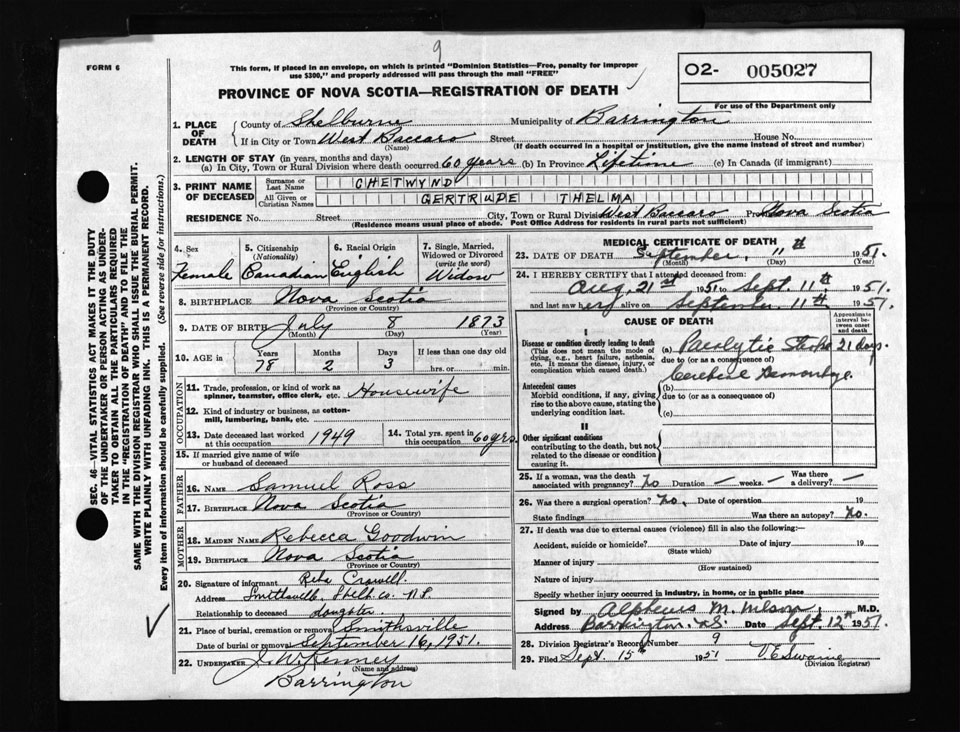 9
FORM 6
This form, if placed in an envelope, on which is printed "Dominion Statistics—Free, penalty for improper
use $300," and properly addressed will pass through the mail "FREE"
PROVINCE OF NOVA SCOTIA—REGISTRATION OF DEATH
02- 005027
For use of the Department only
1. PLACE OF DEATH
County of Shelburne Municipality of Barrington
If in City or Town West Baccaro Street House No.
(Name) (If death occurred in a hospital or institution, give the name instead of street and number)
2. LENGTH OF STAY (in years, months and days)
(a) In City, Town or Rural Division where death occurred 60 years (b) In Province Lifetime (c) In Canada (if immigrant)
3. PRINT NAME OF DECEASED
Surname or Last Name CHETWYND
All Given or Christian Names GERTRUDE THELMA
RESIDENCE No. Street City, Town or Rural Division West Baccaro Nova Scotia
(Residence means usual place of abode. Post Office Address for residents in rural parts not sufficient)
4. Sex Female
5. Citizenship (Nationality) Canadian
6. Racial Origin English
7. Single, Married, Widowed or Divorced (write the word) Widow
8. BIRTHPLACE Nova Scotia
(Province or Country)
9. DATE OF BIRTH July 8 1873
(Month) (Day) (Year)
10. AGE in Years Months Days If less than one day old
78 2 3 hrs. or min.
OCCUPATION
11. Trade, profession, or kind of work as
spinner, teamster, office clerk, etc. Housewife
12. Kind of industry or business, as cotton-
mill, lumbering, bank, etc.
13. Date deceased last worked
at this occupation 1949
14. Total yrs. spent in
this occupation 60 yrs.
15. If married give name of wife
or husband of deceased
FATHER
16. NAME Samuel Ross
17. BIRTHPLACE Nova Scotia
(Province or Country)
MOTHER
18. MAIDEN NAME Rebecca Goodwin
19. BIRTHPLACE Nova Scotia
(Province or Country)
20. Signature of informant Reba Crowell.
Address Smithsville, Shelb. Co. N.S.
Relationship to deceased daughter.
21. Place of burial, cremation or removal Smithsville
Date of burial or removal September 16, 1951.
22. UNDERTAKER J. W. Kenney
(Name and address)
Barrington
MEDICAL CERTIFICATE OF DEATH
23. DATE OF DEATH September, 11th 1951
(Month) (Day) (Year)
24. I HEREBY CERTIFY that I attended deceased from:
Aug. 21st 1951 to Sept. 11th 1951.
and last saw her alive on September 11th 1951.
CAUSE OF DEATH
Approximate interval between onset and death
I
Disease or condition directly leading to death
(This does not mean the mode of
dying, e.g., heart failure, asthenia,
etc. It means the disease, injury, or
complication which caused death.)
(a) Paralytic Stroke 21 days.
due to (or as a consequence of)
Cerebral Hemorrhage.
Antecedent causes
Morbid conditions, if any, giving
rise to the above cause, stating the
underlying condition last.
(b)
due to (or as a consequence of)
(c)
II
Other significant conditions
contributing to the death, but not
related to the disease or condition
causing it.
25. If a woman, was the death
associated with pregnancy? no Duration — weeks. — Was there a delivery? —
26. Was there a surgical operation? No. Date of operation 19
State findings Was there an autopsy? No.
27. If death was due to external causes (violence) fill in also the following:—
Accident, suicide or homicide? Date of injury 19
(State which)
Manner of injury
(How sustained)
Nature of injury
Specify whether injury occurred in industry, in home, or in public place
Signed by Alpheus M. Wilson, M.D.
Address Barrington, N.S. Date Sept. 12th 1951.
28. Division Registrar's Record Number 9
29. Filed Sept. 15th 1951 V. E. Swaine
(Division Registrar)
SEC. 46—VITAL STATISTICS ACT MAKES IT THE DUTY
OF THE UNDERTAKER OR PERSON ACTING AS UNDER-
TAKER TO OBTAIN ALL THE PARTICULARS REQUIRED
IN THE "REGISTRATION OF DEATH" AND TO FILE THE
SAME WITH THE DIVISION REGISTRAR WHO SHALL ISSUE THE BURIAL PERMIT.
WRITE PLAINLY WITH UNFADING INK. THIS IS A PERMANENT RECORD.
Every item of information should be carefully supplied. (See reverse side for instructions.)